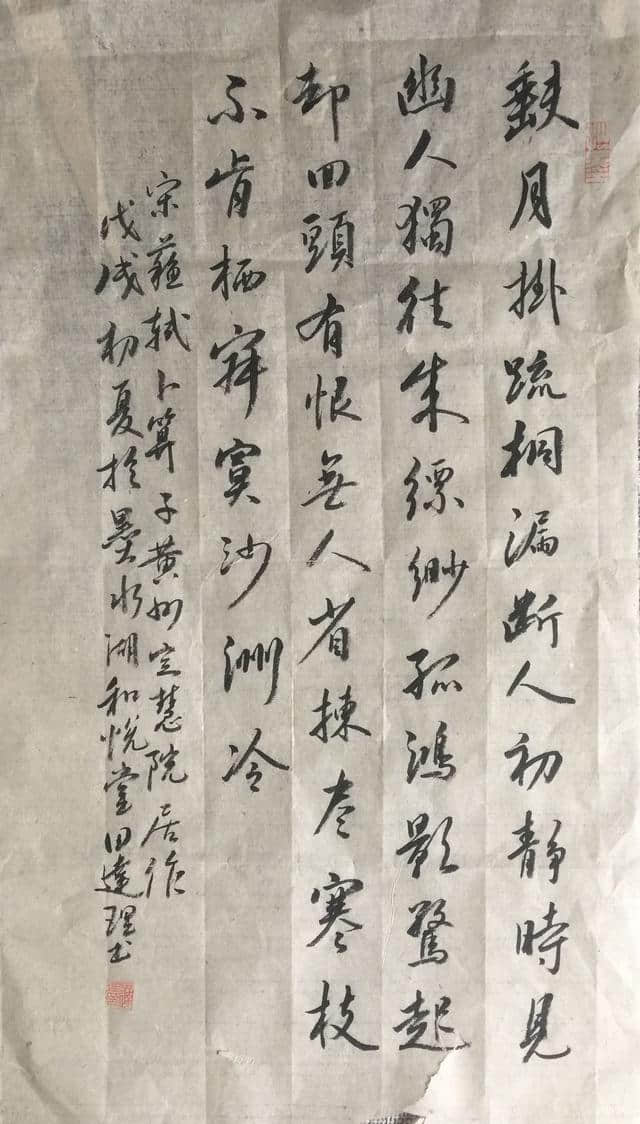 缺月掛疏桐漏断人初靜時見
幽人獨往来縹緲孤鴻影驚起
却回頭有恨無人省揀盡寒枝
不肯栖寂寞沙洲冷
宋蘇軾卜算子黄州定慧院居作
戊戌初夏於墨水湖和悦堂田達理书